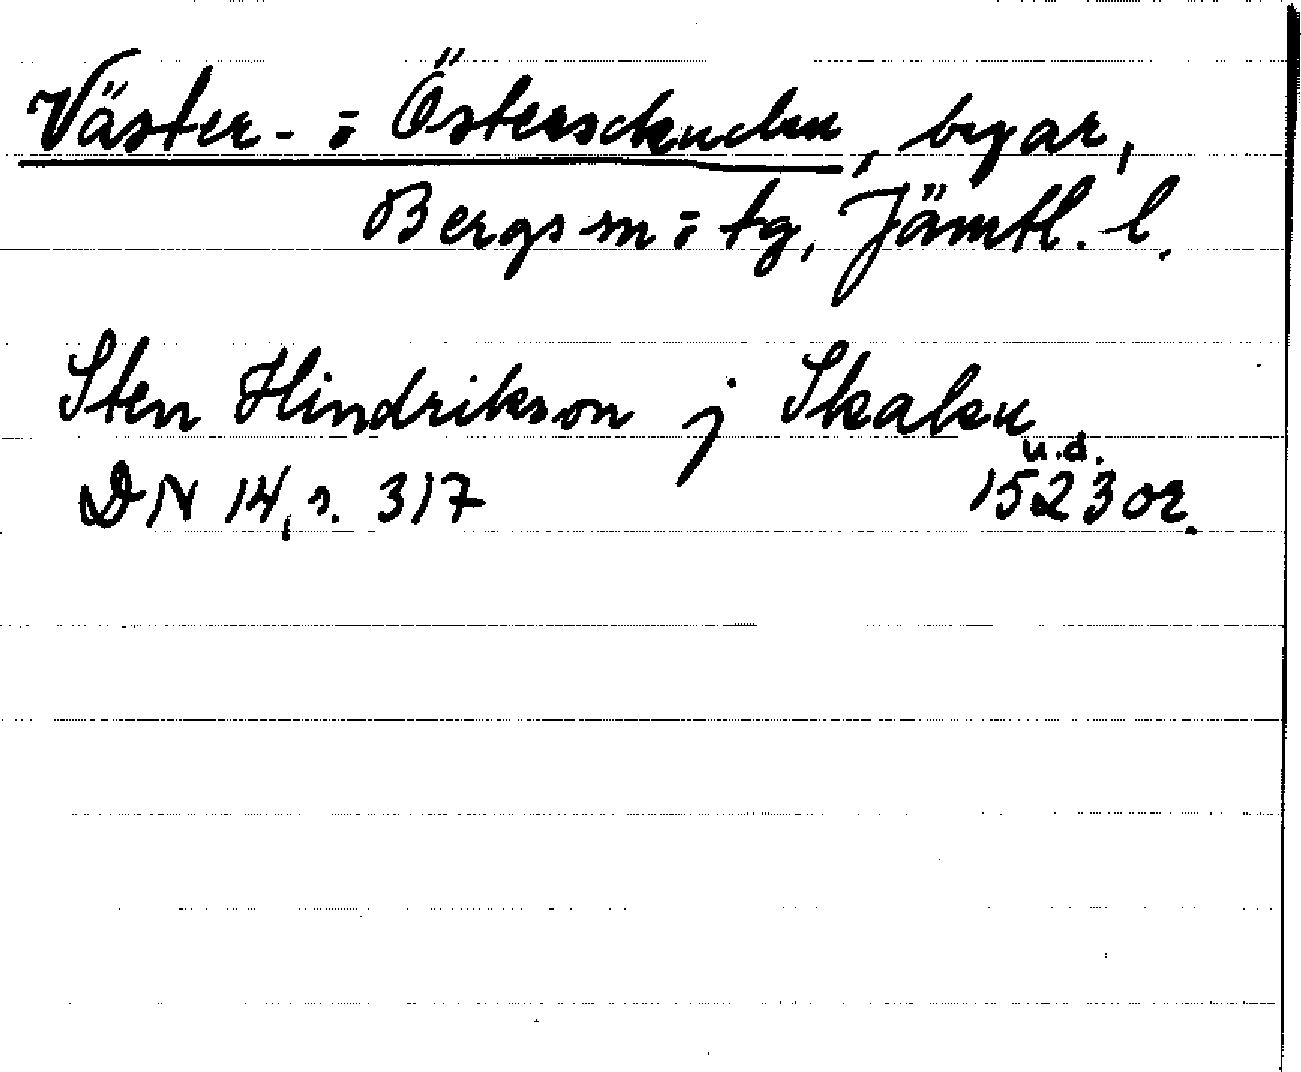 Väster- o Österskucku, byar,
Bergs sn o tg, Jämtl. l.
Sten Hindrikson j Skaku
u.d.
DN 14, s. 317 1523 or.